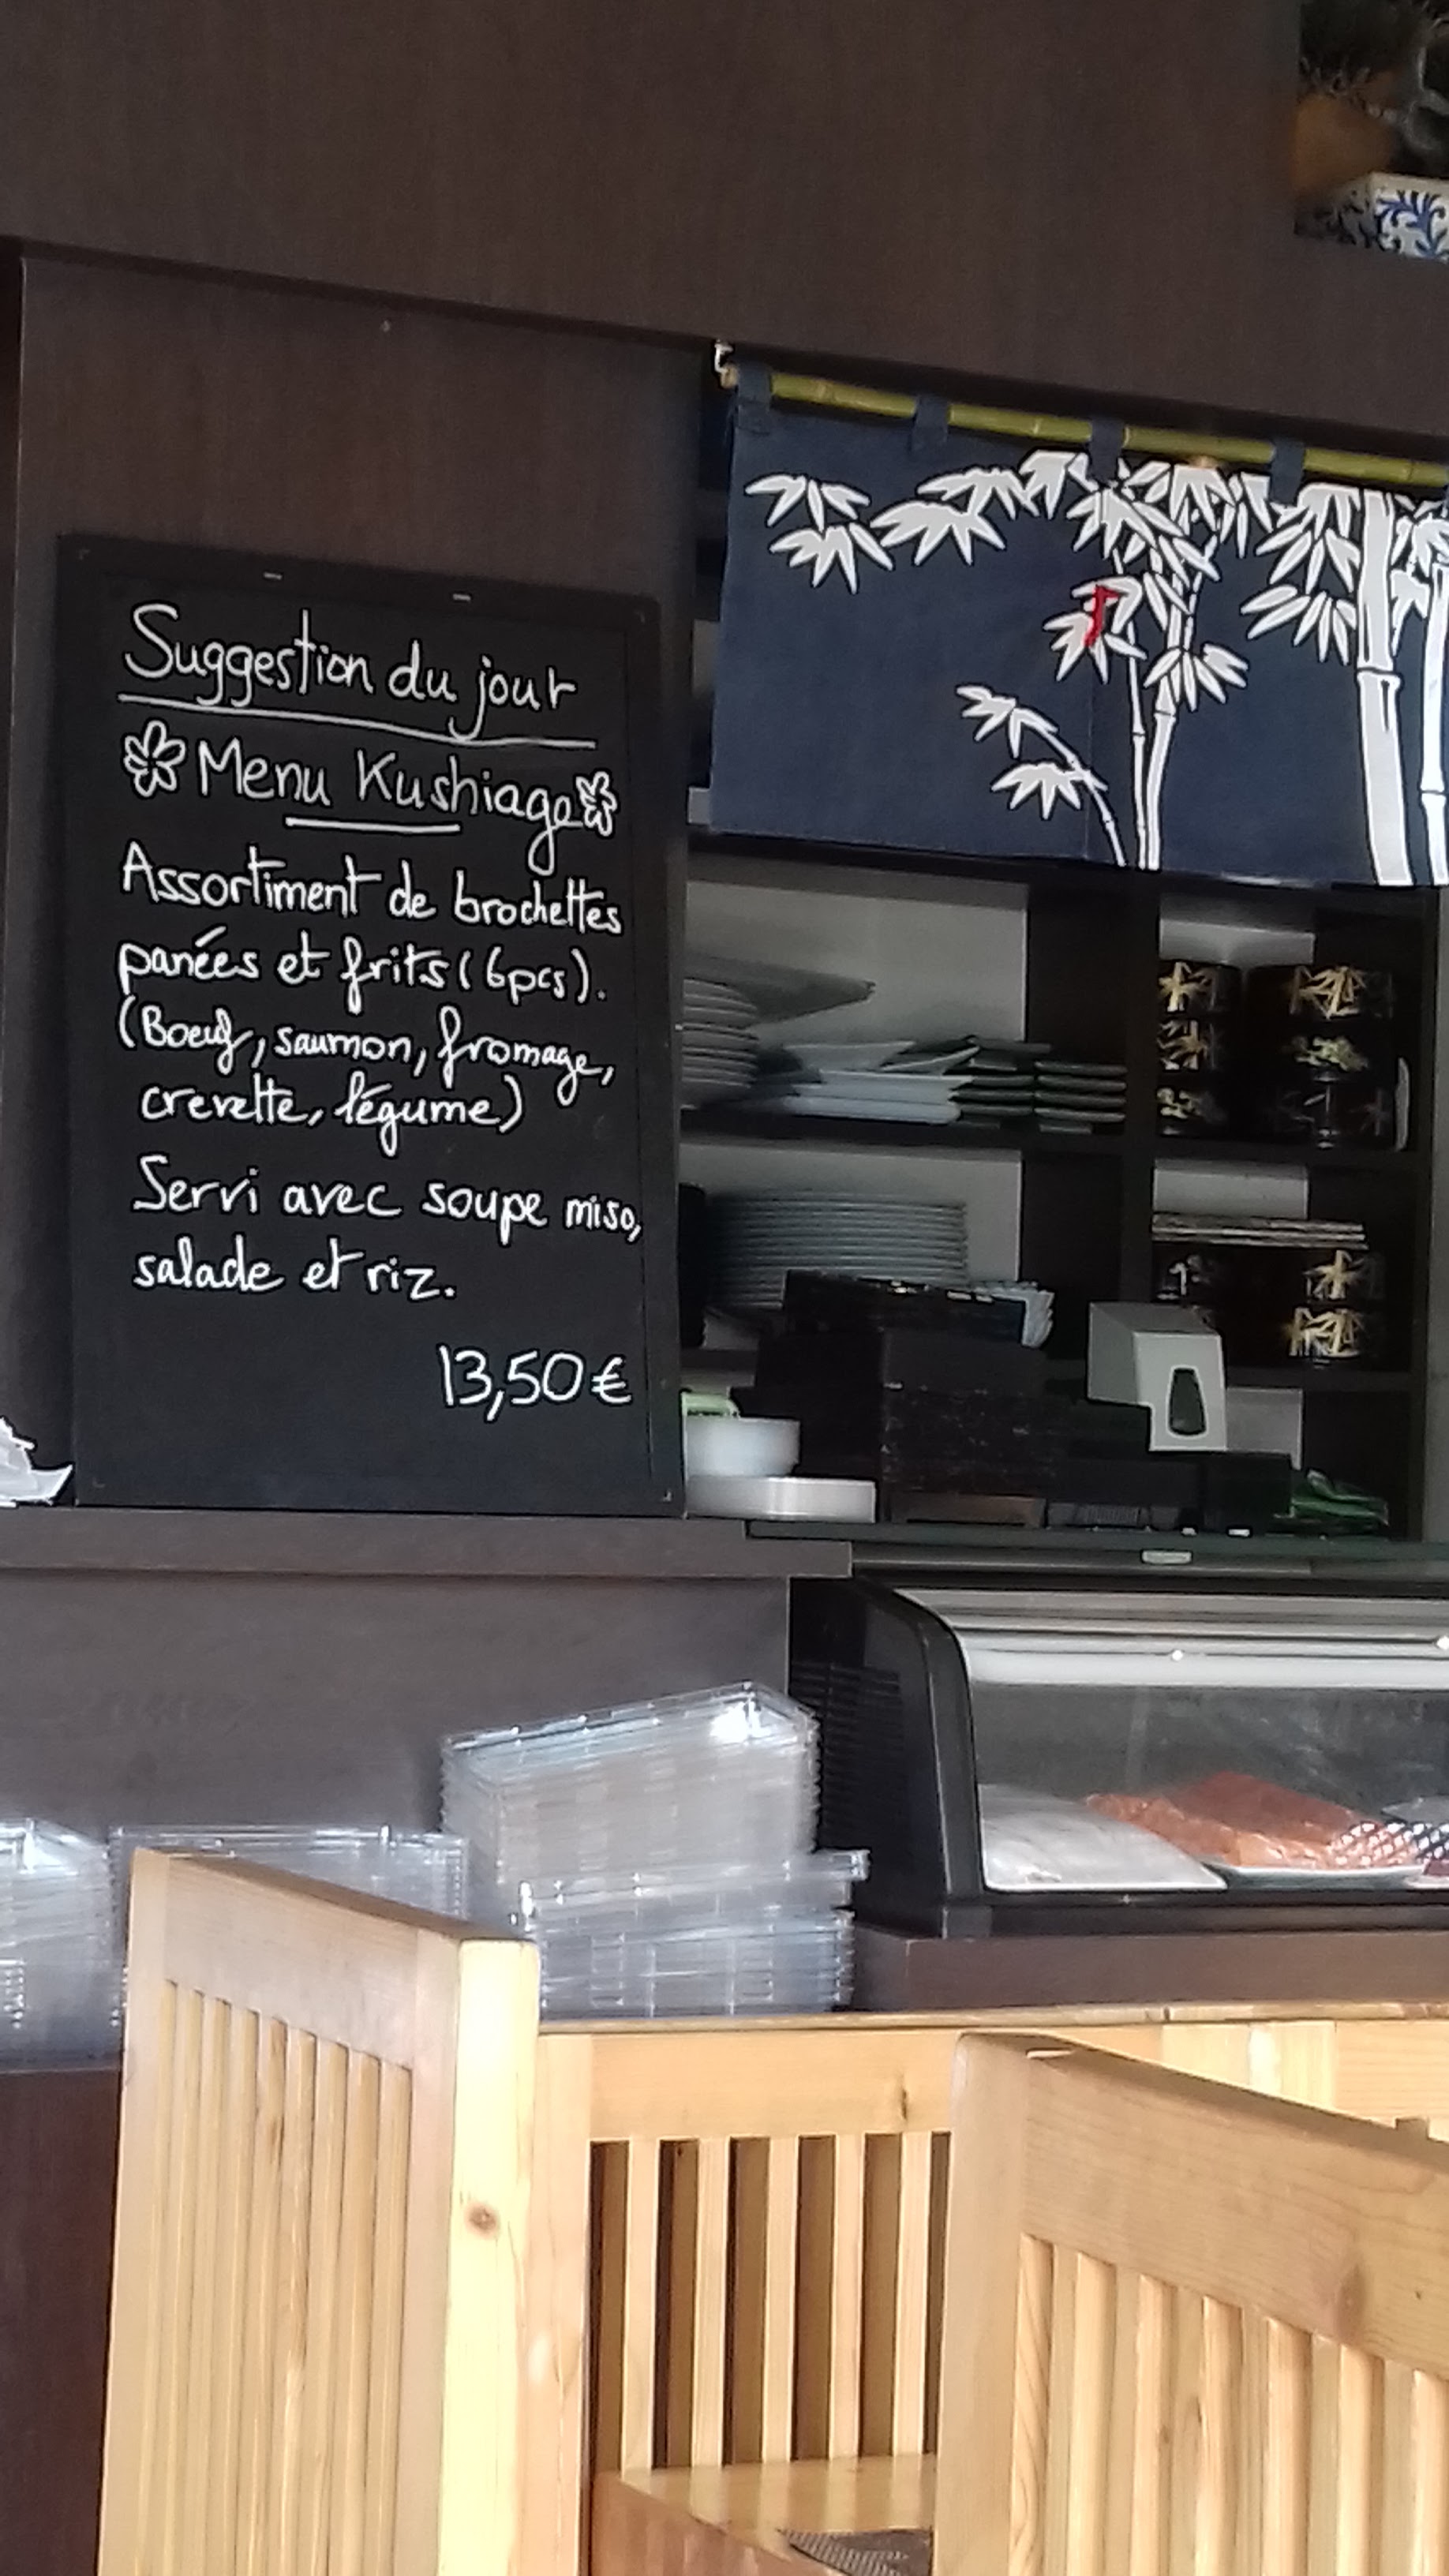 Suggestion du jour
Menu Kushiage
Assortiment de brochettes
panées et frits (6pcs).
(Boeuf, saumon, fromage,
crevette, légume)
Servi avec soupe miso,
salade et riz.
13,50€